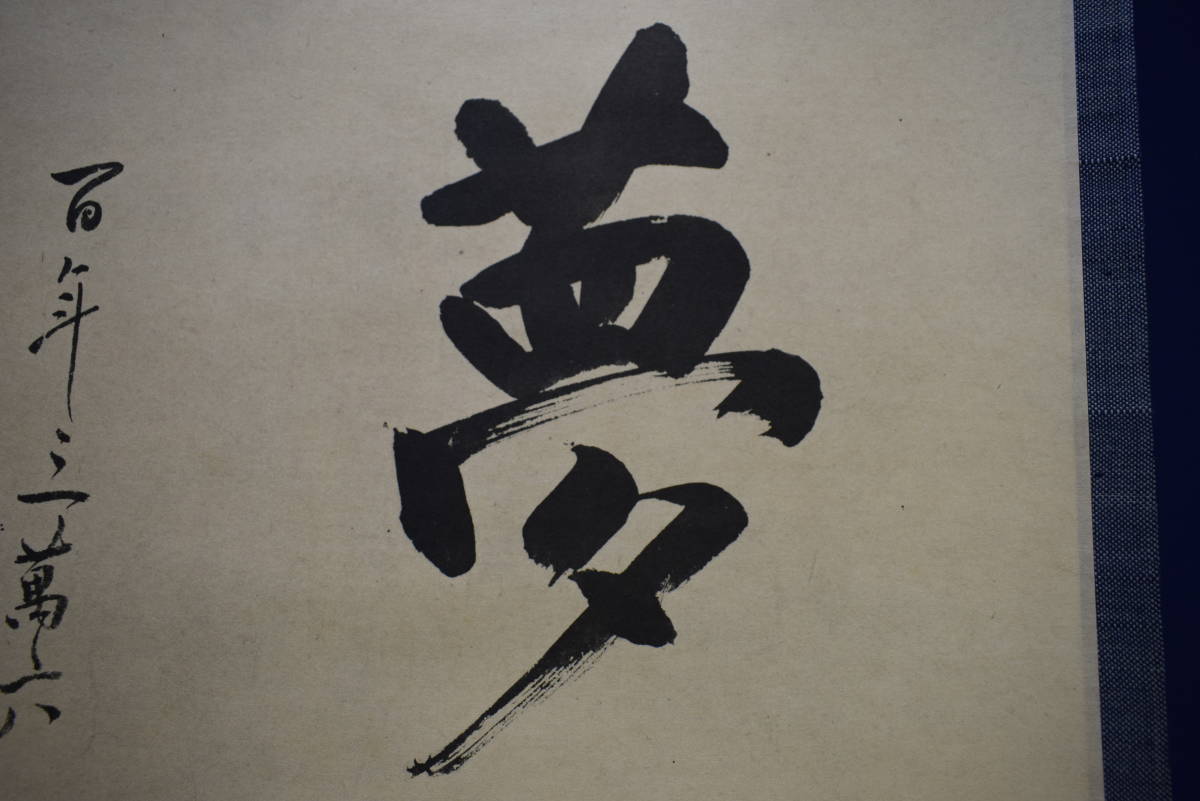 夢
百年三萬六